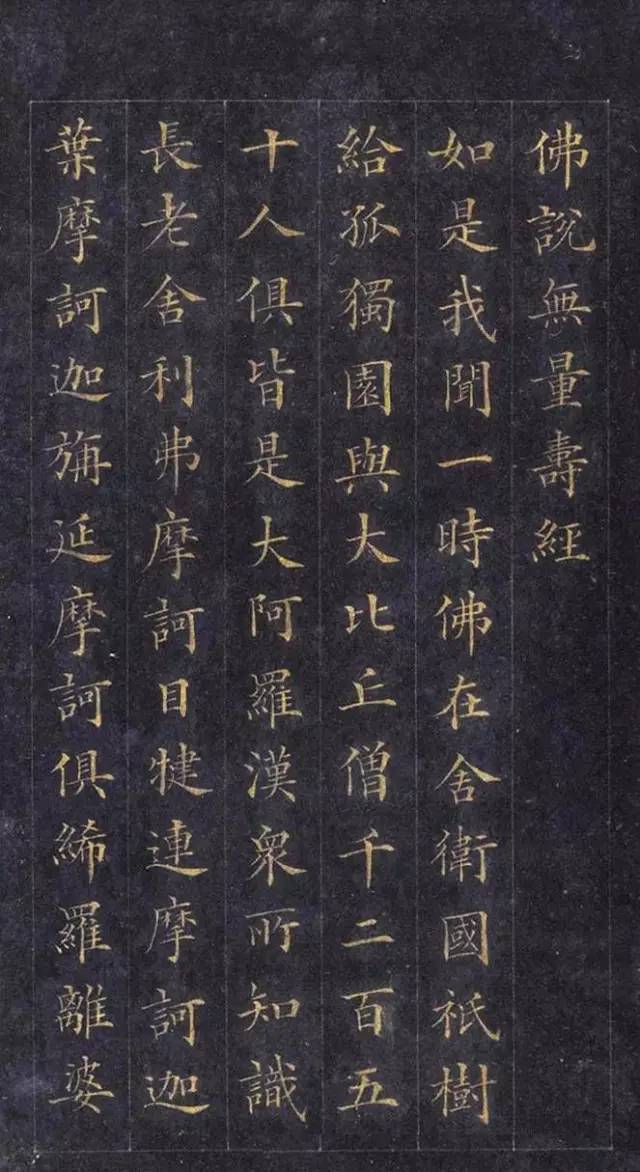 佛説無量壽經
如是我聞一時佛在舍衛國祇樹
給孤獨園與大比丘僧千二百五
十人俱皆是大阿羅漢衆所知識
長老舍利弗摩訶目犍連摩訶迦
葉摩訶迦旃延摩訶俱絺羅離婆